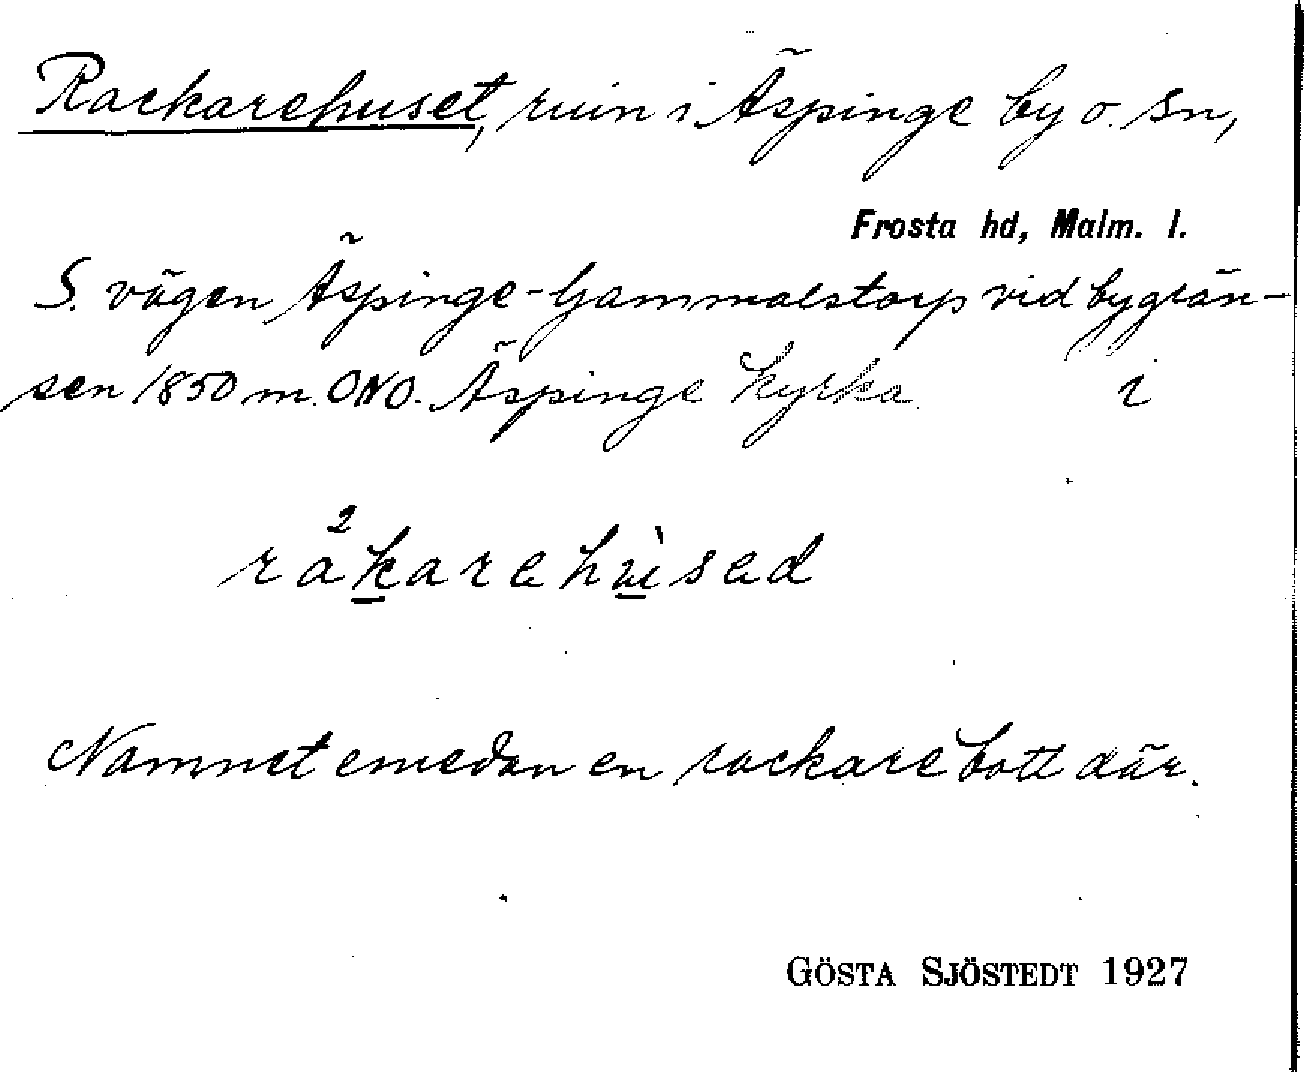 Rackarehuset, ruin i Äspinge by o. sn,
Frosta hd, Malm. l.
S. vägen Äspinge-Gammalstorp vid bygrän-
sen 1850 m. ONO. Äspinge kyrka. i
rákarehùsed
Namnet emedan en rackare bott där.
GÖSTA SJÖSTEDT 1927